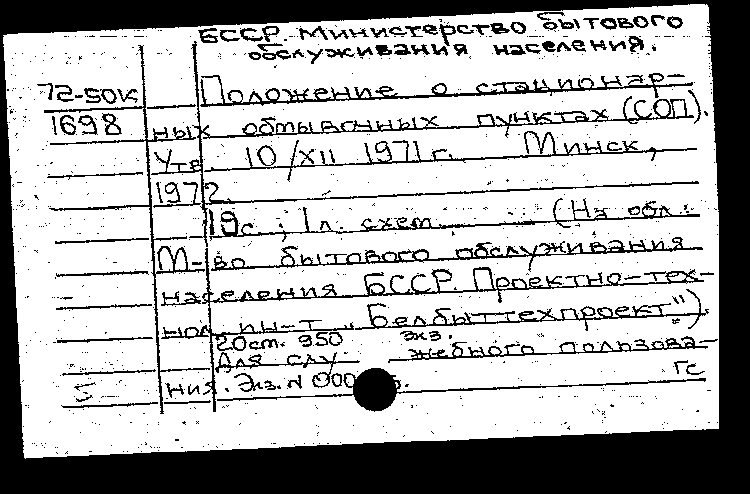 БССР. Министерство бытового
обслуживания населения.
72-50к Положение о стационар-
1698 ных обмывочных пунктах (СОП).
Утв 10/XII 1971 г. Минск,
1972.
19с.; 1 л. схем. (На обл.:
М-во бытового обслуживания
населения БССР. Проектно-тех-
нол. ин-т „Белбыттехпроект").
20 ст. 950 экз.
Для служебного пользова-
ния. Экз. N 000
гс